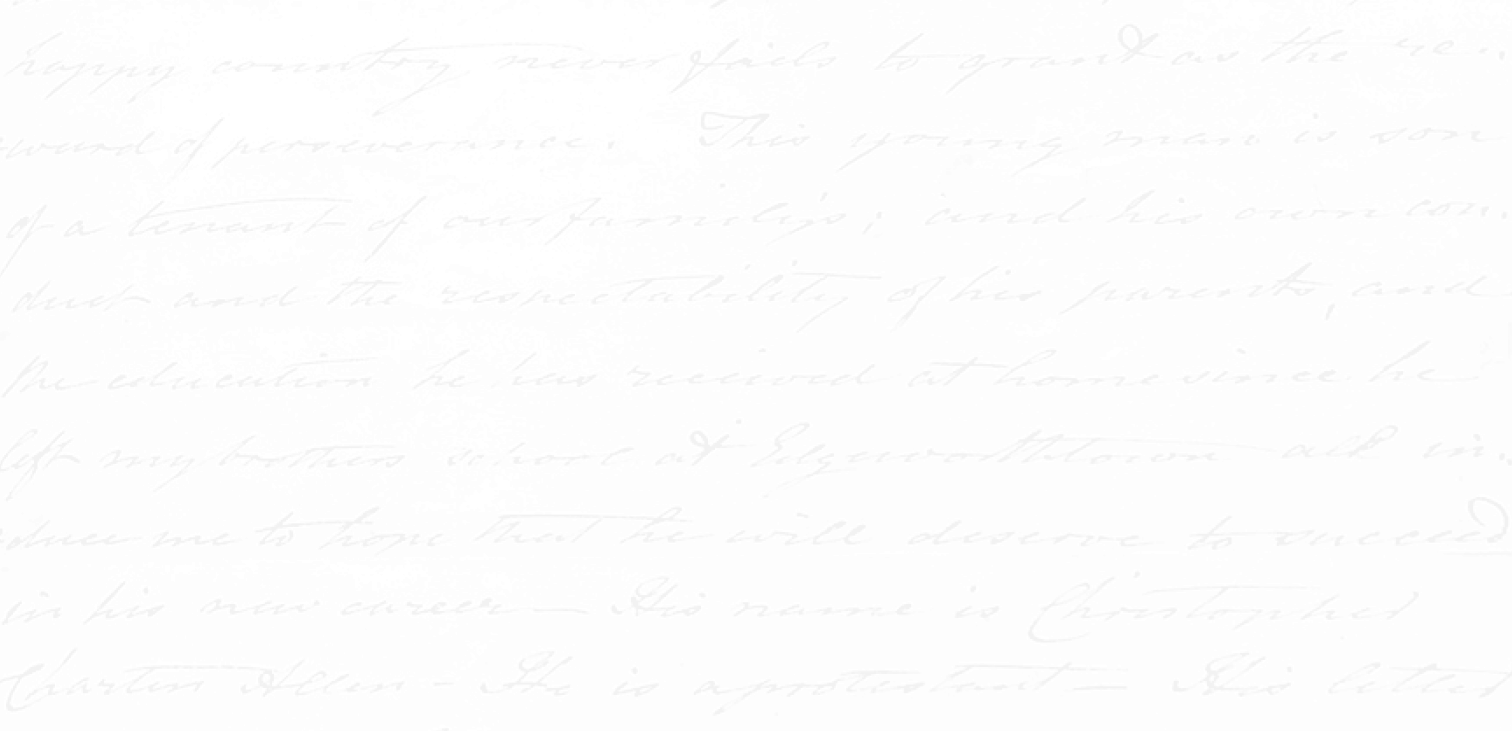 happy country never fails to grant as the re-
ward of perseverance. This young man is son
of a tenant of our family's; and his own con-
duct and the respectability of his parents, and
the education he has received at home since he
left my brothers school at Edgworthtown all in-
duce me to hope that he will deserve to succeed
in his new career — His name is Christopher
Allen — He is a protestant — His letter